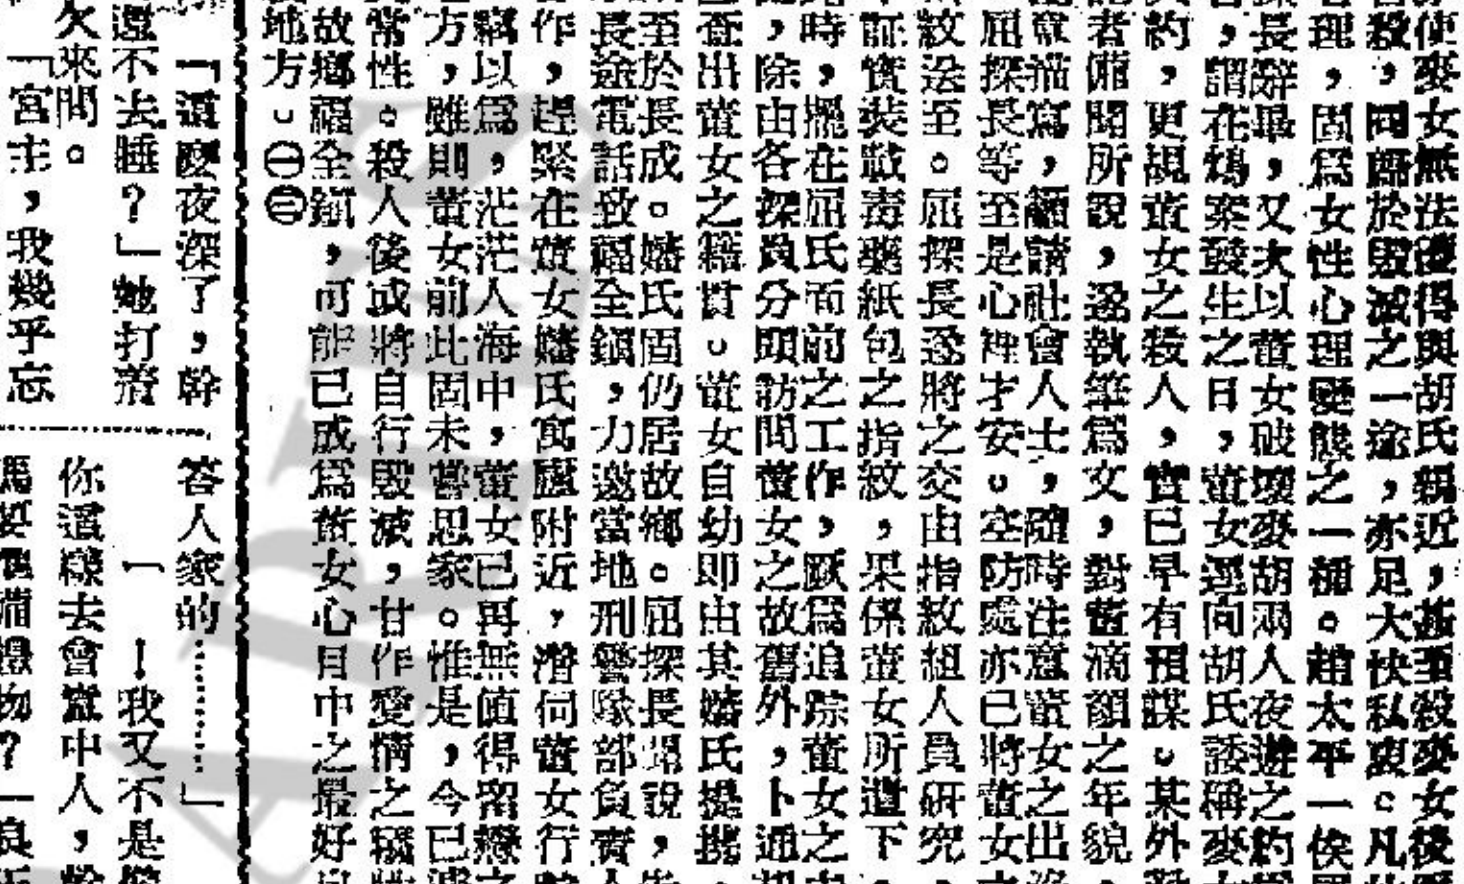 使麥女無法獲得與胡氏親近，甚至殺麥女後
殺，同歸於毀滅之一途，亦足大快私衷。凡
理，固爲女性心理變態之一種。趙太平一俟
長辭畢，又夫以董女破壞麥胡兩人夜遊之約
，謂在案發生之日，董女逕向胡氏諉稱麥
約，更董女之殺人，實已早有預謀。某外
者備聞所說，遂執筆爲文，對董滴額之年貌
意描寫，籲請社會人士，隨時注意董女之出
屈探長等至是心裡才安。空防處亦已將董女
紋送至。屈探長遂將之交由指紋組人員研究
証實裝載毒藥紙包之指紋，果係董女所遺下
時，擺在屈氏面前之工作，厥爲追踪董女之
，除由各探員分頭訪問董女之故舊外，卜通
查出董女之籍貫。董女自幼即由其嬸氏提攜
至於長成。嬸氏固仍居故鄉。屈探長說，
長途電話致福全鎭，力邀當地刑警隊部負責
作，趕緊在董女嬸氏寓廬附近，潛伺董女行
竊以爲，茫茫人海中，董女已再無値得留戀
方，雖則董女前此固未嘗思家。惟是，今已
常性。殺人後或將自行毀滅，甘作愛情之犧
故鄉福全鎭，可能已成爲董女心目中之最好
地方。㊀㊂
「這麼夜深了，幹
還不去睡？」她打着
欠來問。
「宮主，我幾乎忘
答人家的………」
一！我又不是
你這樣去會意中人，
禮物？一良